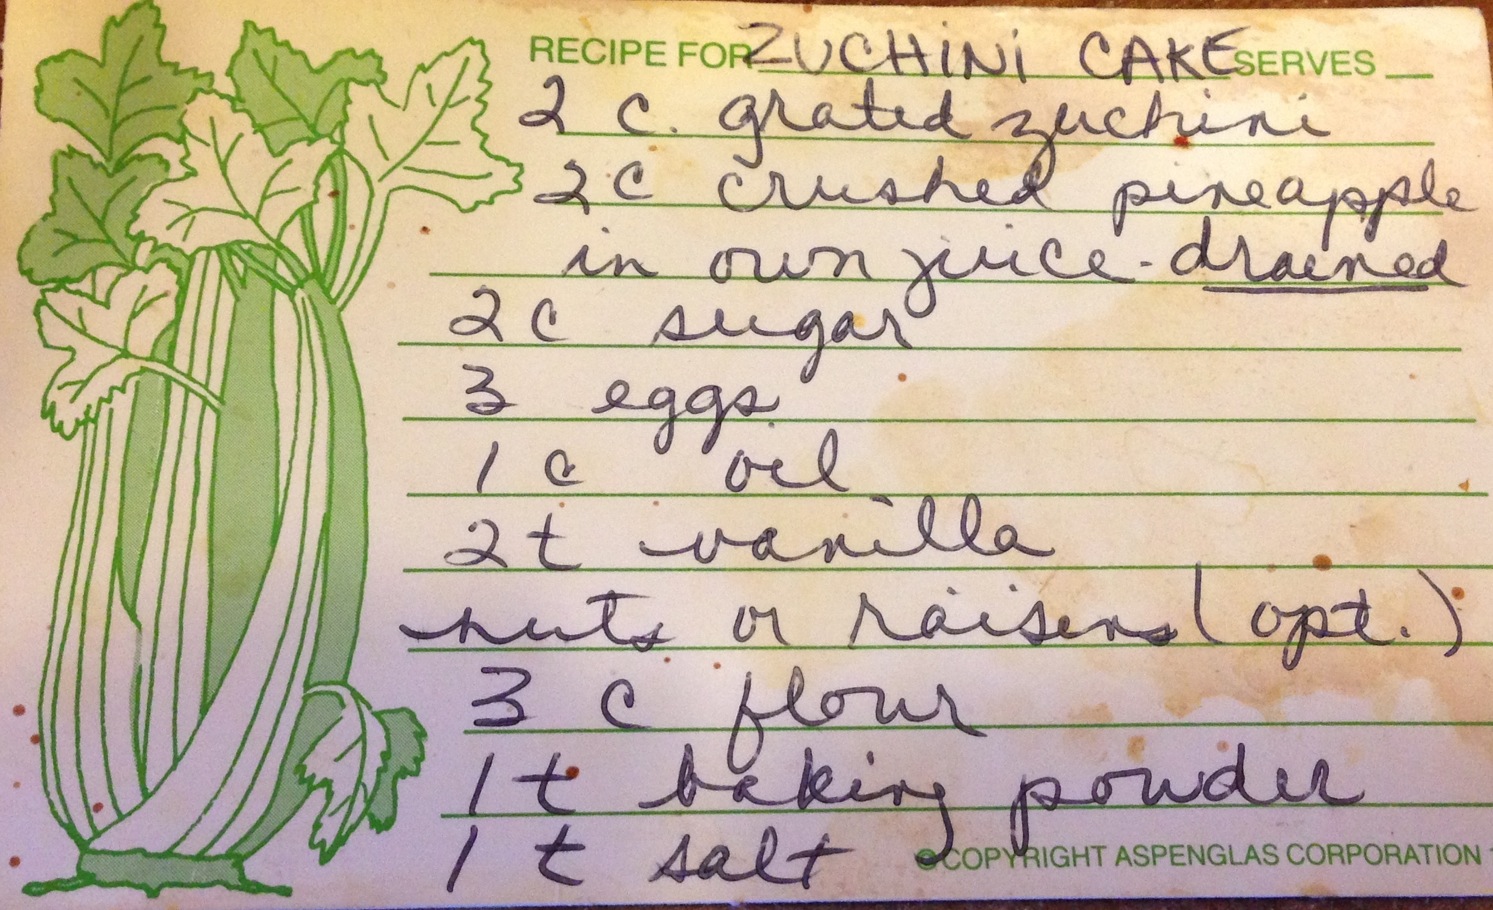 RECIPE FOR ZUCHINI CAKE SERVES
2 c. grated zuchini
2 c crushed pineapple
in own juice - drained
2 c sugar
3 eggs
1 c oil
2 t vanilla
nuts or raisins (opt.)
3 c flour
1 t baking powder
1 t salt
©COPYRIGHT ASPENGLAS CORPORATION